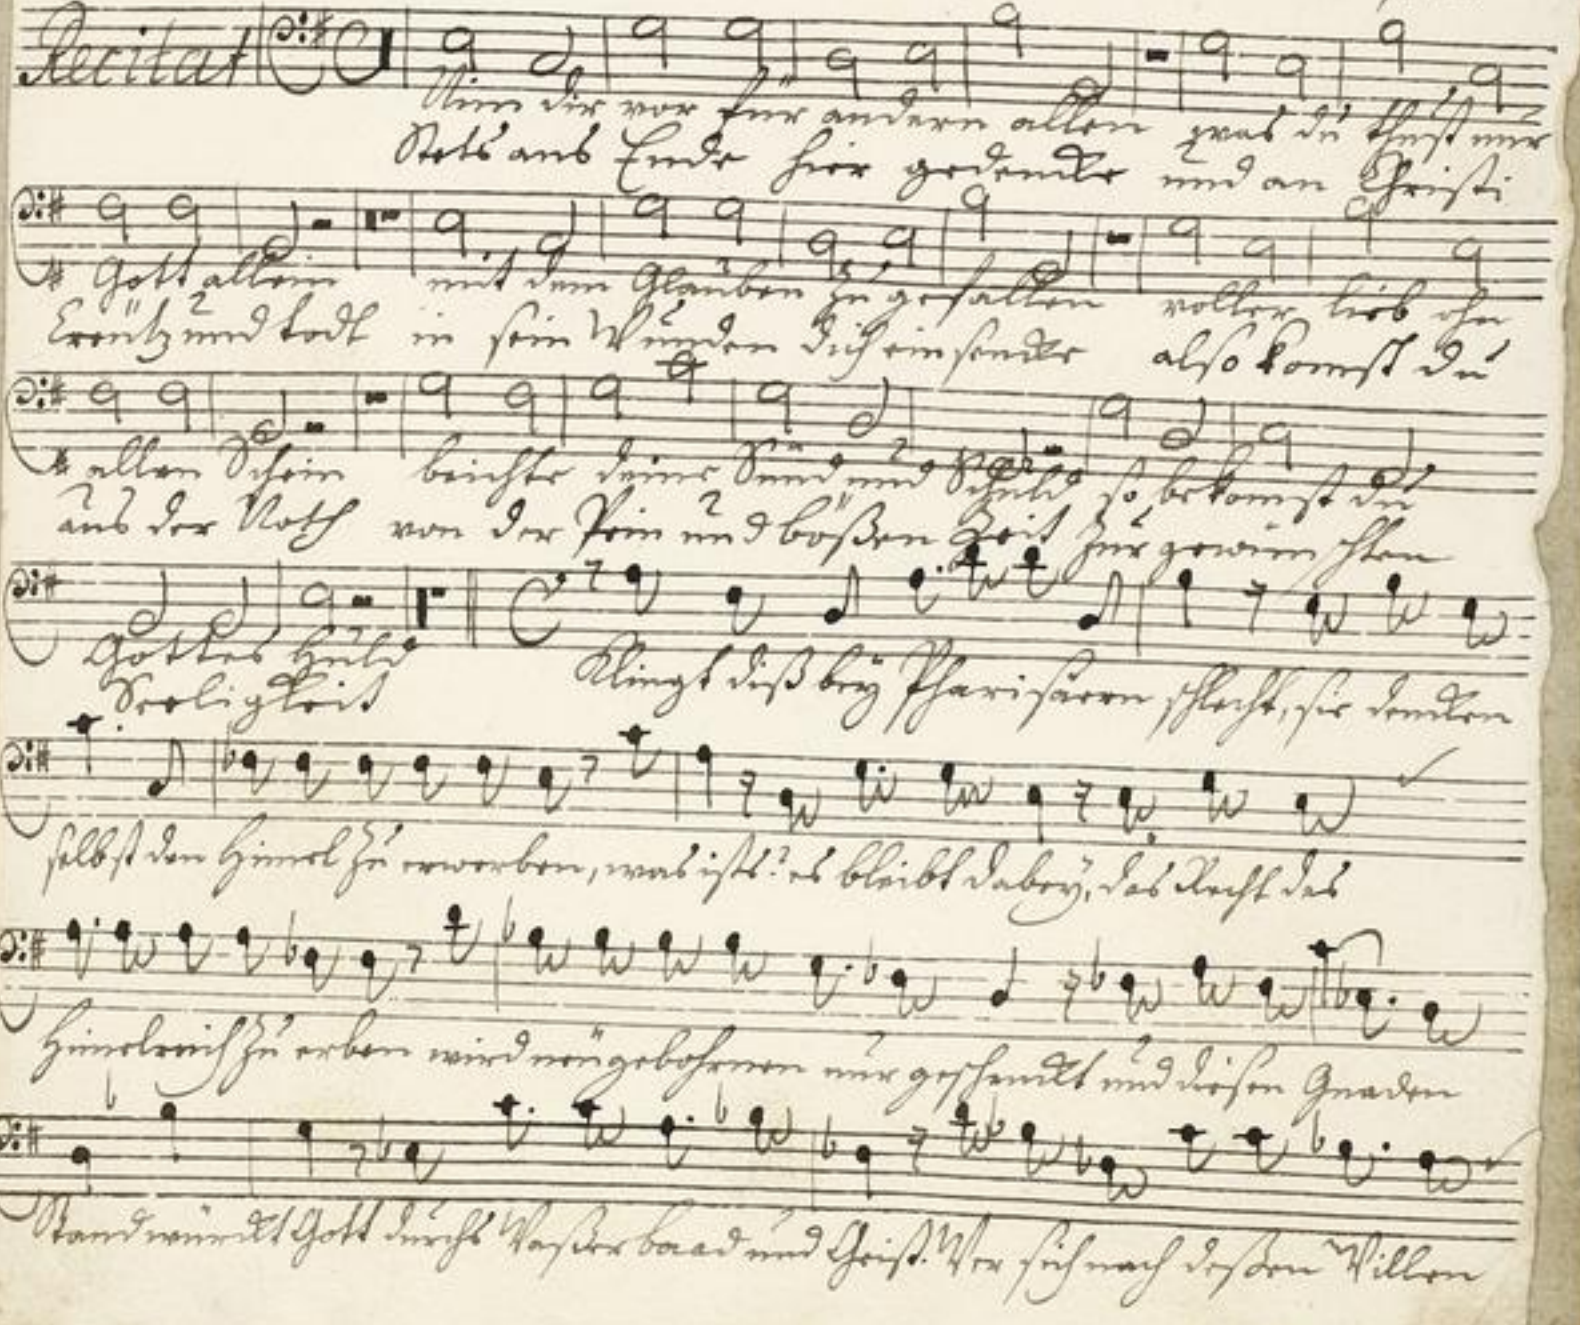 Recitat
Nim dir vor für andern allen was du thust nur
Stets ans Ende hier gedencke und an Christi
Gott allein mit dem Glauben zu gefallen voller lieb ohn
Creütz und todt in sein Wunden dich einsencke also komst du
allen Schein beichte deine Sünd und Schuld so bekomst du
aus der Noth von der Pein und bößen Zeit zur gewünschten
Gottes Huld Klingt diß bey Pharisäern schlecht, sie dencken
Seeligkeit
selbst den Himel zu erwerben, was ists? es bleibt dabey, das Recht des
Himelreich zu erben wird neügebohrnen nur geschenckt und diesen Gnaden
Stand würckt Gott durchs Waßerbaad und Geist. Wer sich nach deßen Willen